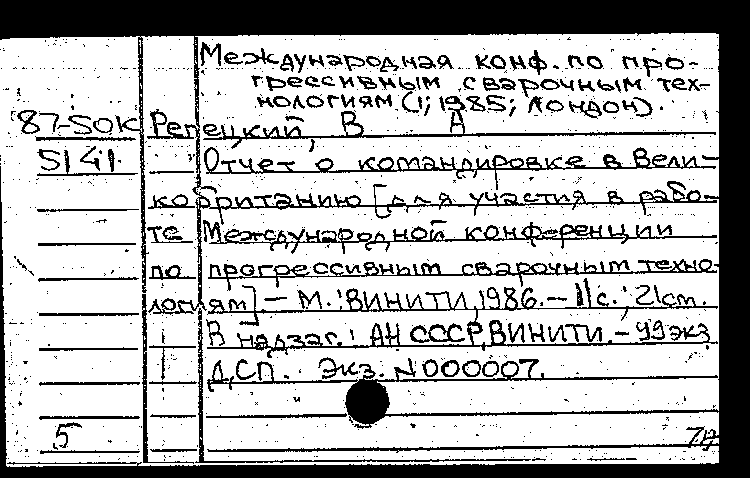 Международная конф. по про-
грессивным сварочным тех-
нологиям (1; 1985; Лондон).
87-SOK Репецкий, В А
5141 Отчет о командировке в Вели-
кобританию [для участия в рабо-
те Международной конференции
по прогрессивным сварочным техно-
логиям] - М.: ВИНИТИ, 1986. - 11с.; 21см.
В надзаг.: АН СССР, ВИНИТИ. - 99экз
ДСП. Экз. N000007.
5